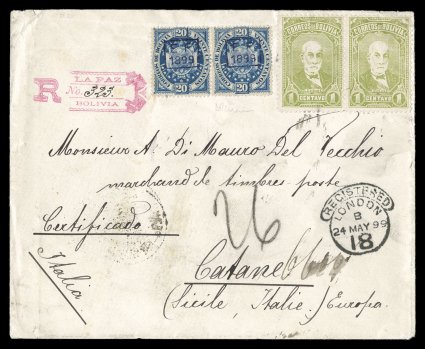 20 20 20 20
1899 1899
CORREOS DE BOLIVIA CORREOS DE BOLIVIA
1 CENTAVO 1 1 CENTAVO 1
LA PAZ
R No. 323
BOLIVIA
Monsieur A. Di Mauro Del Vecchio
marchand de timbres poste
Certificado
Italia
26
Catane
(Sicile, Italie.) Europa
REGISTERED
LONDON
B
24 MAY 99
18